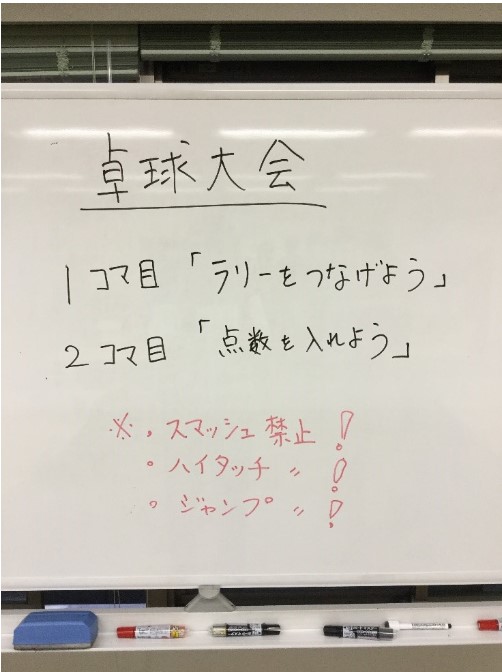 卓球大会
1コマ目「ラリーをつなげよう」
2コマ目「点数を入れよう」
※。スマッシュ禁止!
。ハイタッチ 〃 !
。ジャンプ 〃 !